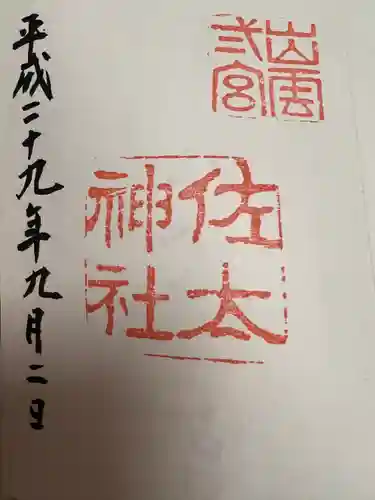 出雲
弐宮
佐太
神社
平成二十九年九月二日